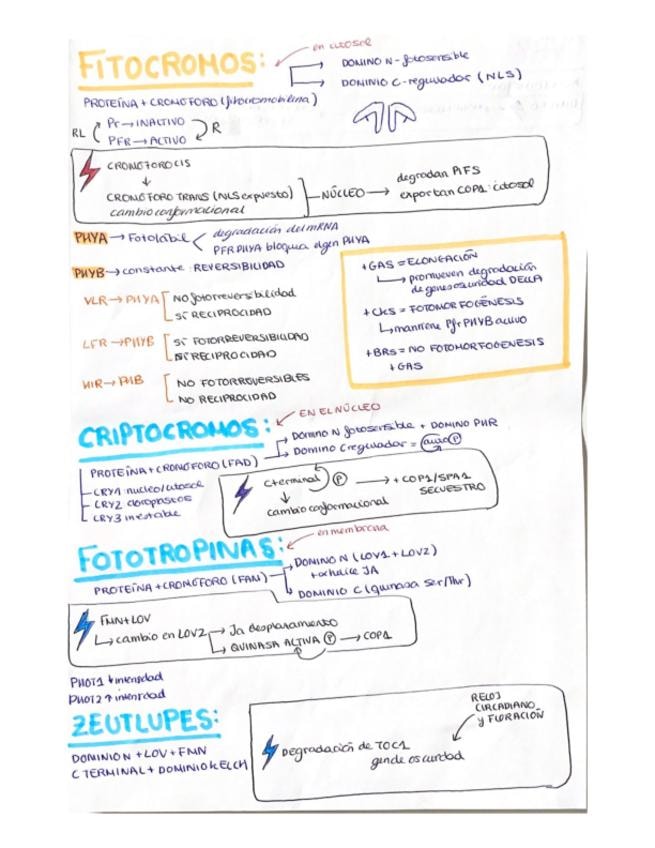 FITOCROMOS:
en citosol
DOMINO N-fotosensible
DOMINIO C-regulador (NLS)
PROTEÍNA + CROMOFORO (fitocromobilina)
RL
Pr → INACTIVO
PFR → ACTIVO
R
CROMOFORO CIS
↓
CROMOFORO TRANS (NLS expuesto)
cambio conformacional
NÚCLEO →
degradan PIFS
exportan COP1: citosol
PHYA → Fotolábil
degradación del mRNA
PFR PHYA bloquea el gen PHYA
PHYB → constante: REVERSIBILIDAD
VLR → PHYA
No fotorreversibilidad
SÍ RECIPROCIDAD
LFR → PHYB
SÍ FOTORREVERSIBILIDAD
SÍ RECIPROCIDAD
HIR →
NO FOTORREVERSIBLES
NO RECIPROCIDAD
+ GAS = ELONGACIÓN
promueven degradación
de genes oscuridad DELLA
+ CKs = FOTOMORFOGÉNESIS
mantiene Pfr PHYB activo
+ BRs = NO FOTOMORFOGENESIS
+ GAS
CRIPTOCROMOS:
EN EL NÚCLEO
Domino N fotosensible + DOMINO PHR
Domino C regulador = auto P
PROTEÍNA + CROMOFORO (FAD)
CRY1 núcleo/citosol
CRY2 cloroplastos
CRY3 inestable
C terminal P → + COP1/SPA1
SECUESTRO
↓
cambio conformacional
FOTOTROPINAS:
en membrana
DOMINO N (LOV1 + LOV2)
+ αhélice JA
PROTEÍNA + CROMÓFORO (FMN)
DOMINIO C (quinasa Ser/Thr)
FMN + LOV
cambio en LOV2
Ja desplazamiento
QUINASA ACTIVA P → COP1
PHOT1 ↓ intensidad
PHOT2 ↑ intensidad
ZEUTLUPES:
DOMINIO N + LOV + FMN
C TERMINAL + DOMINIO KELCH
RELOJ
CIRCADIANO
y FLORACIÓN
Degradación de TOC1
gen de oscuridad